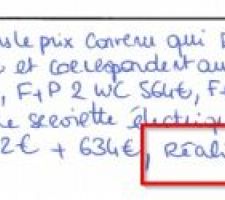 le prix convenu qui
et correspondent au
, F+P 2 WC 564€, F+
serviette électriq
2€ + 634€, Réali